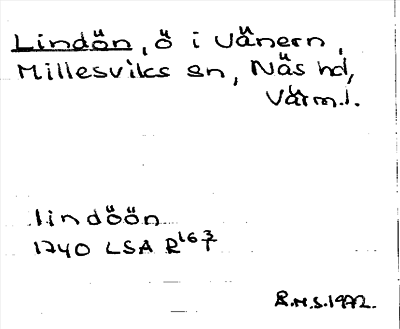 Lindön, ö i Vänern,
Millesviks sn, Näs hd,
Värml.
lindöön
1740 LSA R16 3/7
R.H.S. 1972.